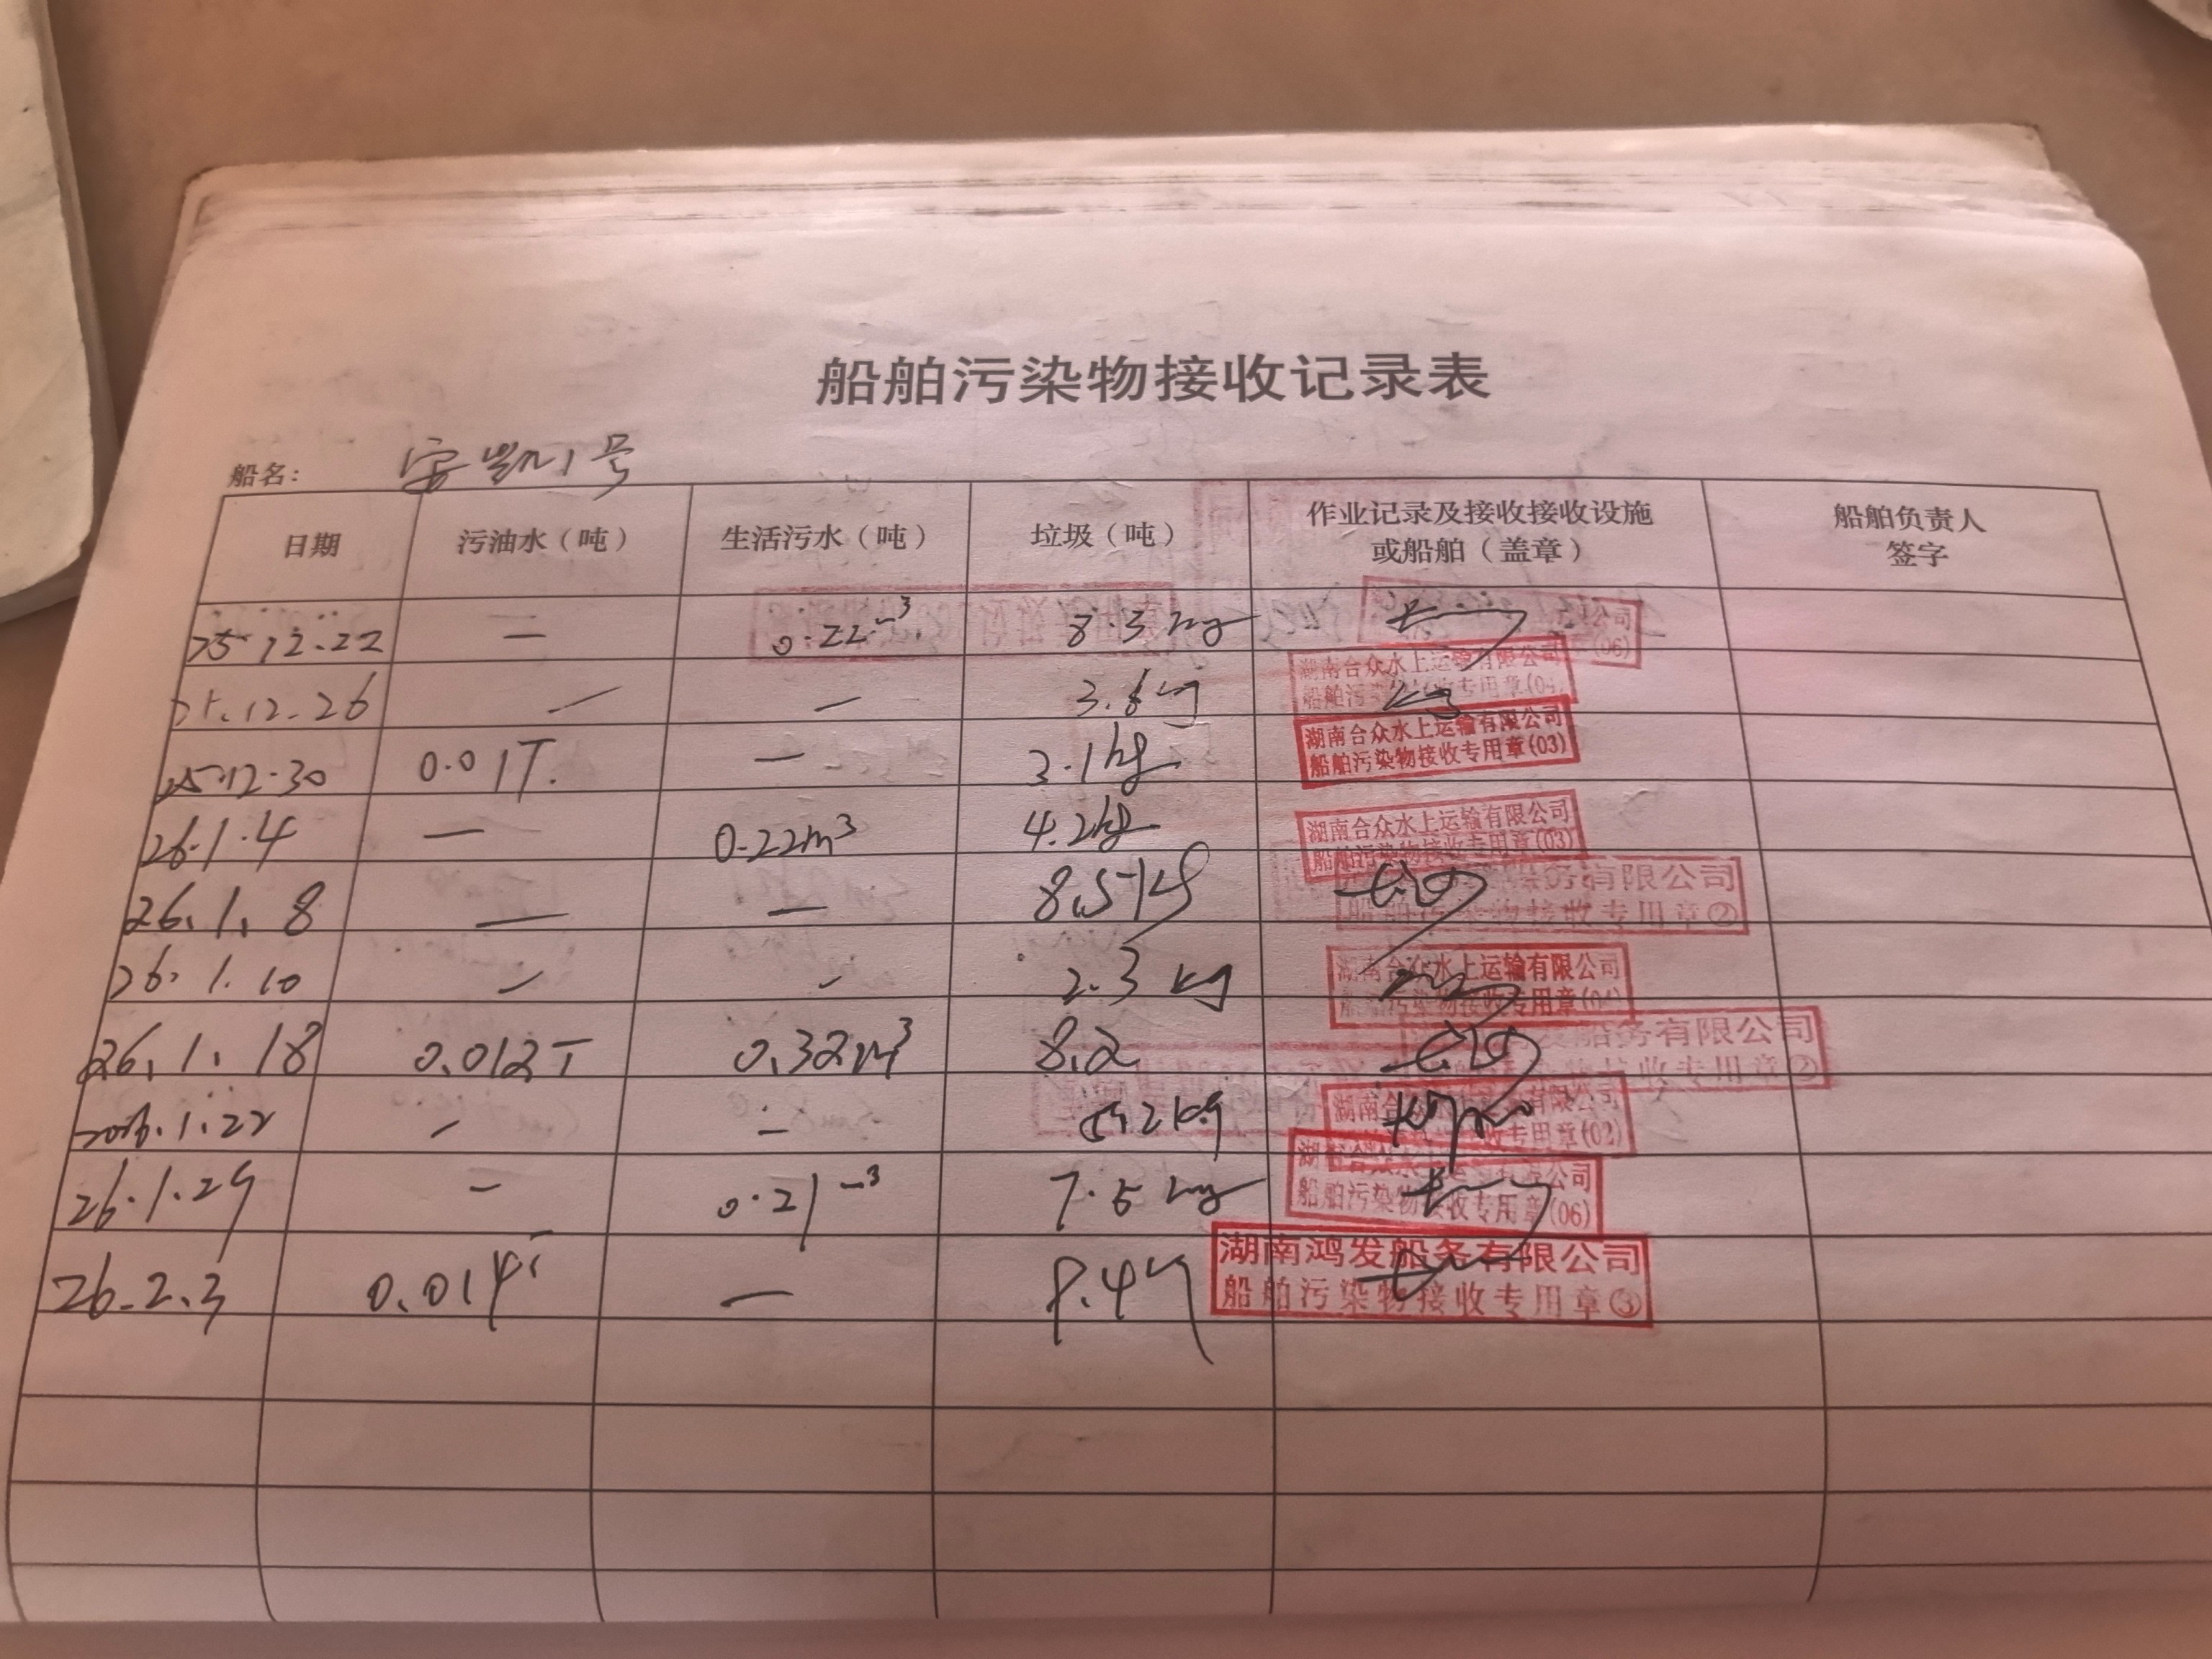 船舶污染物接收记录表
船名: 安凯1号
日期 污油水（吨） 生活污水（吨） 垃圾（吨） 作业记录及接收接收设施或船舶（盖章） 船舶负责人签字
25.12.22 — 0.22m³ 8.3kg 公司 (06)
25.12.26 — — 3.6kg 湖南合众水上运输有限公司 船舶污染物接收专用章(04)
25.12.30 0.01T. — 3.1kg 湖南合众水上运输有限公司 船舶污染物接收专用章(03)
26.1.4 — 0.22m³ 4.2kg 湖南合众水上运输有限公司 船舶污染物接收专用章(03)
26.1.8 — — 8.5kg 务有限公司 船舶污染物接收专用章②
26.1.10 — — 2.3kg 湖南合众水上运输有限公司 船舶污染物接收专用章(04)
26.1.18 0.012T 0.32m³ 8.2 船务有限公司 接收专用章②
2026.1.22 — — 2kg 湖南合 有限公司 收专用章(02)
26.1.29 — 0.21m³ 7.5kg 湖南合众水上运输有限公司 船舶污染物接收专用章(06)
26.2.3 0.014T — 8.4kg 湖南鸿发船务有限公司 船舶污染物接收专用章③